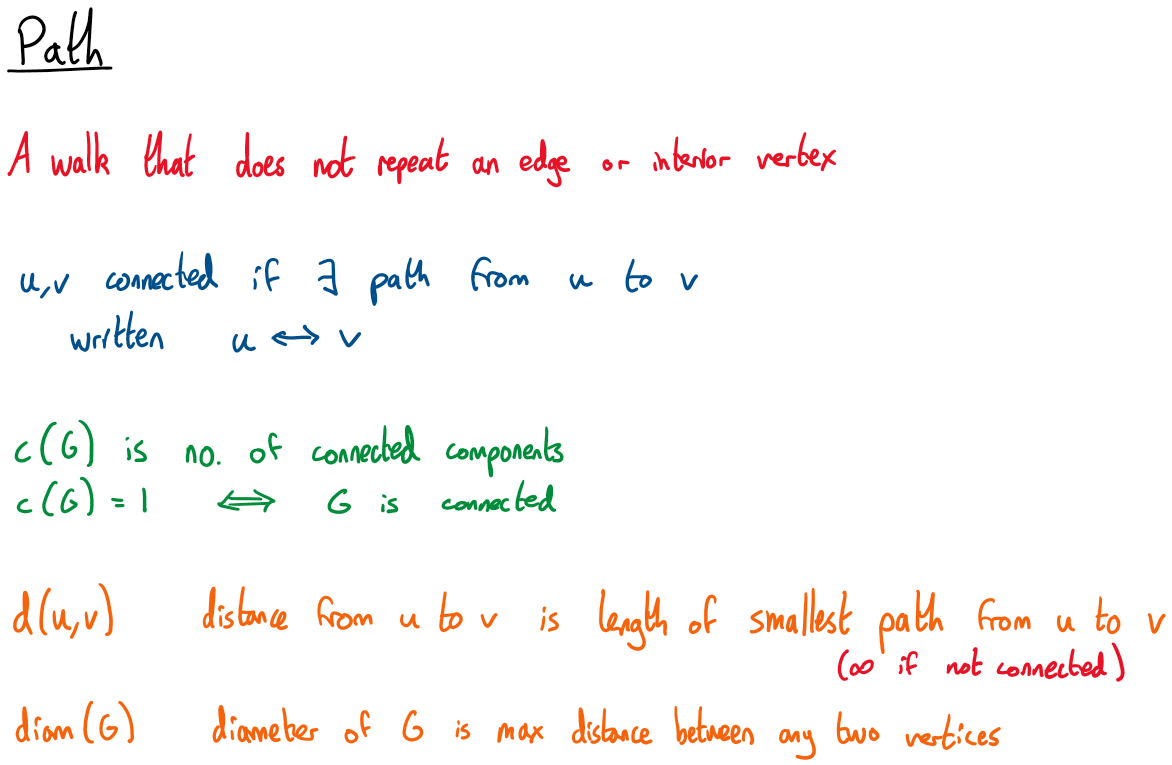 Path
A walk that does not repeat an edge or interior vertex
u,v connected if ∃ path from u to v
written u ↔ v
c(G) is no. of connected components
c(G) = 1 ⟺ G is connected
d(u,v) distance from u to v is length of smallest path from u to v
(∞ if not connected)
diam(G) diameter of G is max distance between any two vertices